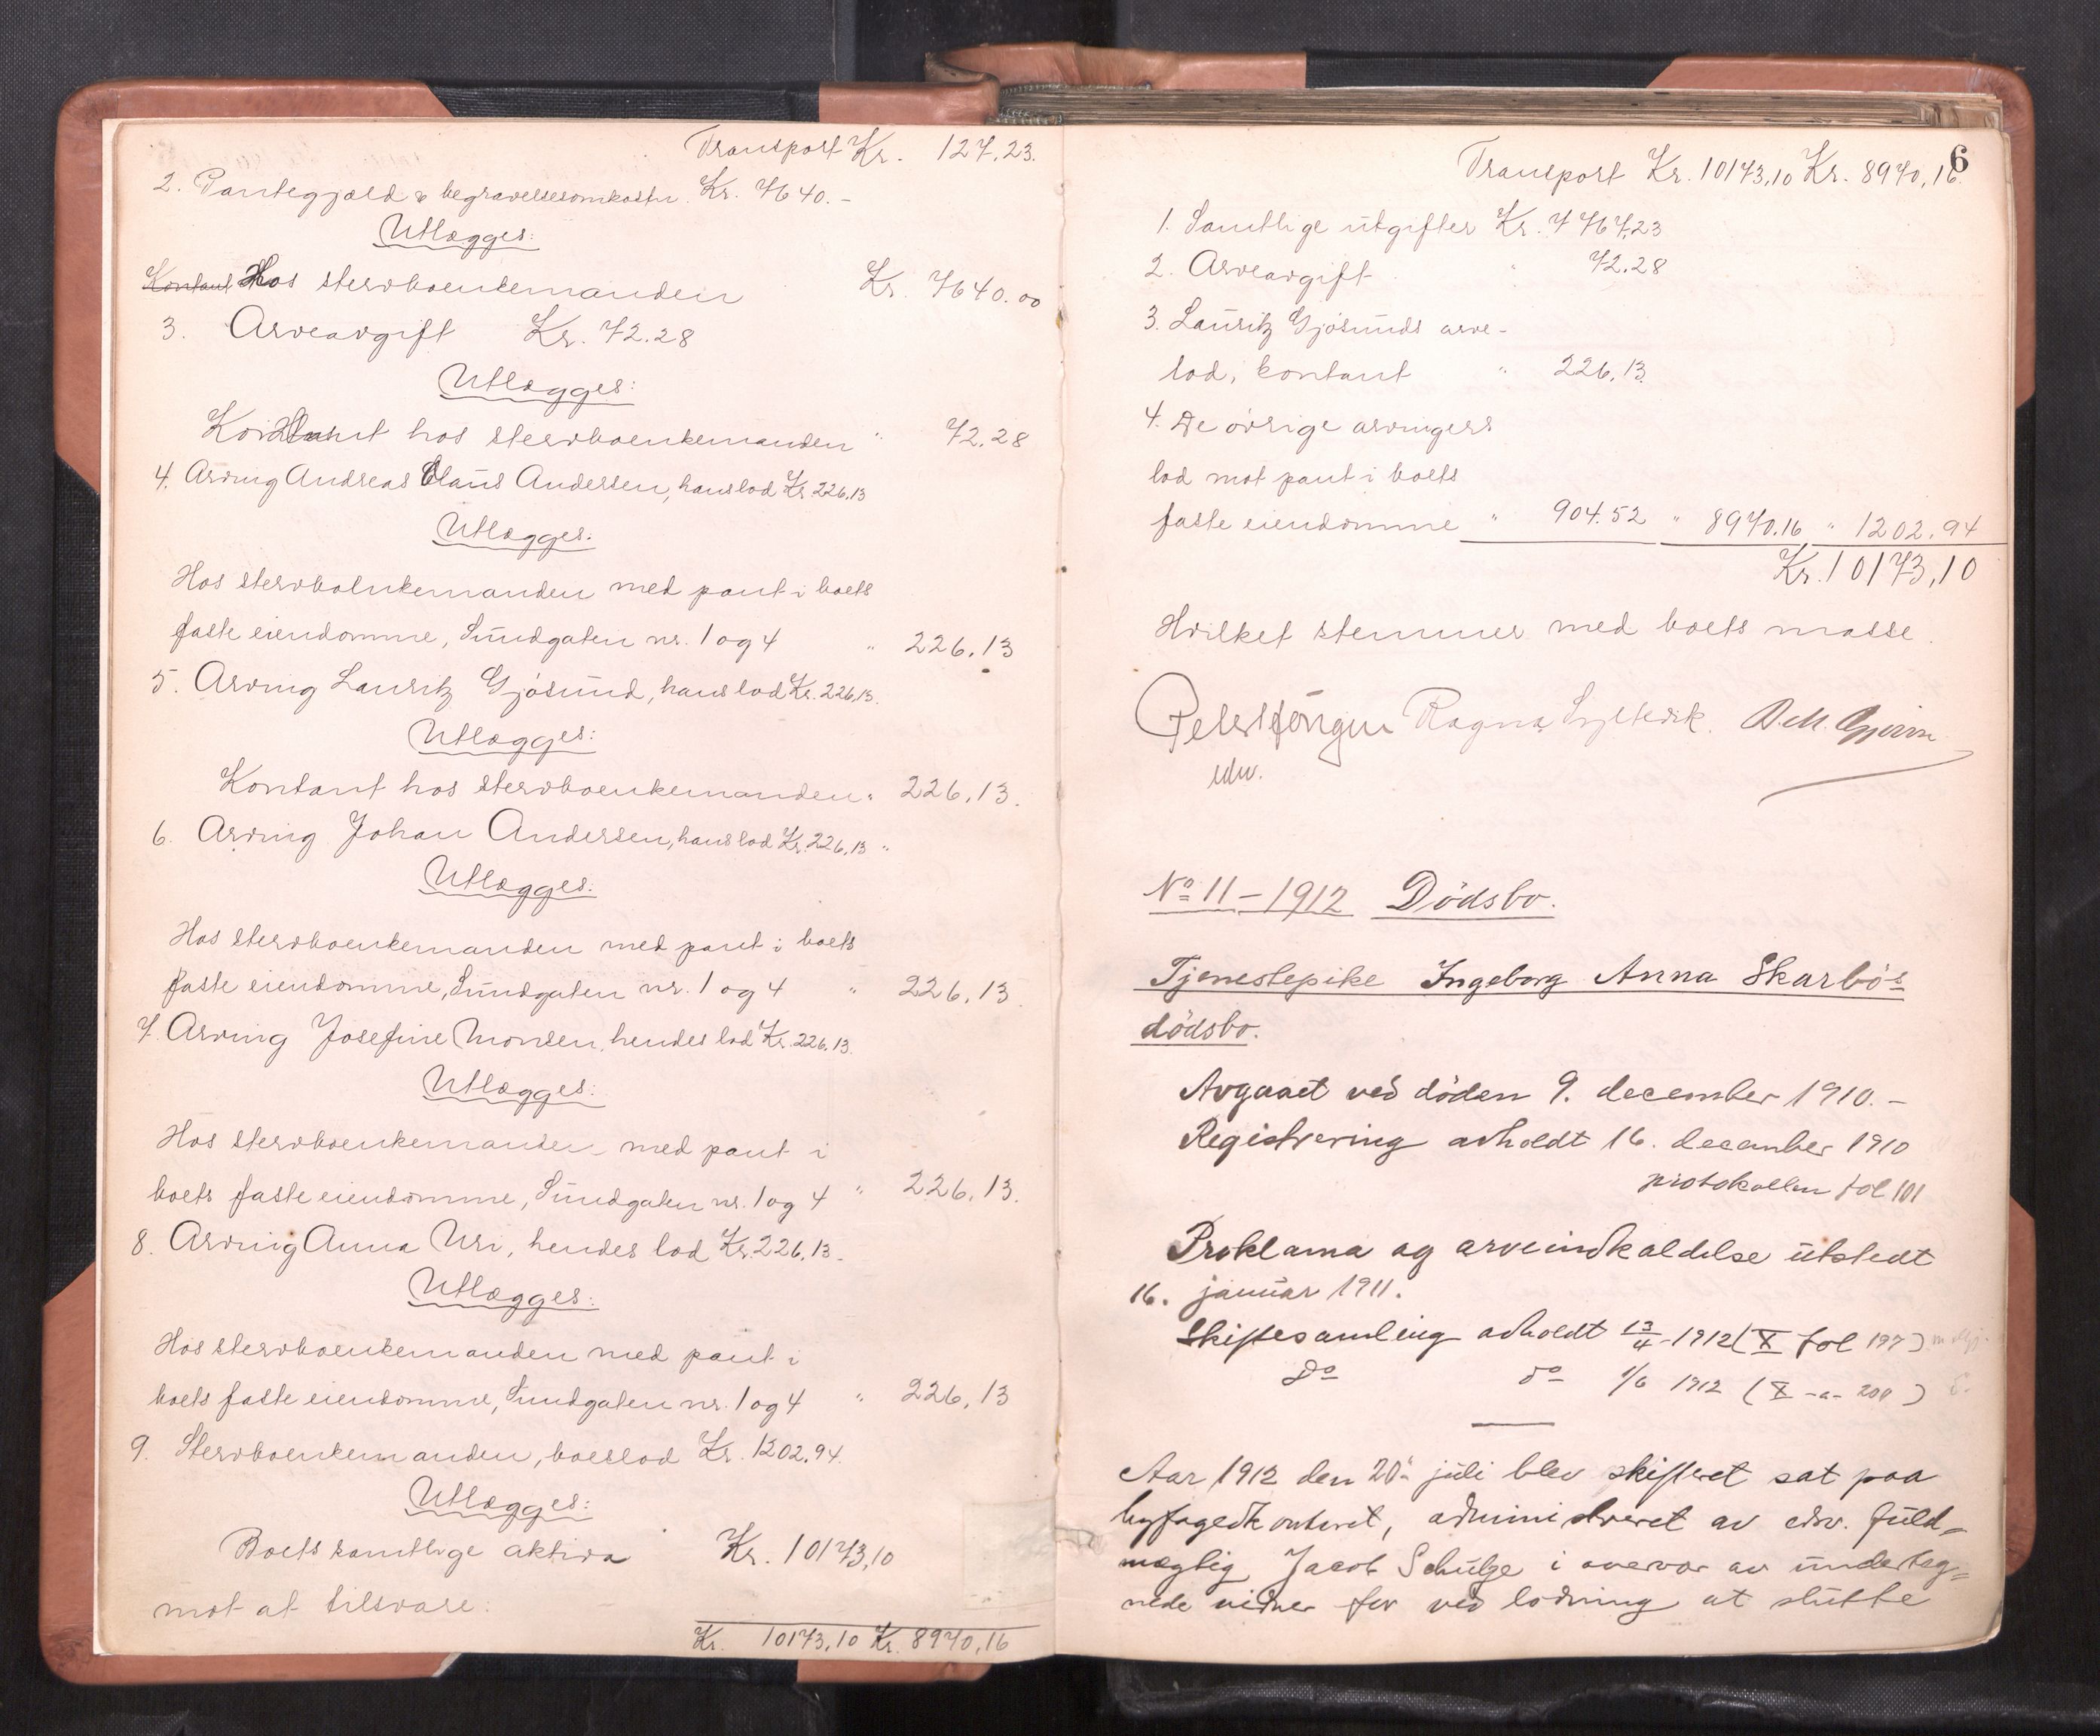 Transport Kr. 127.23.
2. Pantegjæld & begravelsesomkostn. Kr. 7640.-
Utlægges:
Kontant Hos stervboenkemanden Kr. 7640.00
3. Arveavgift Kr. 72.28
Utlægges:
Kontant hos stervboenkemanden " 72.28
4. Arving Andreas Claus Andersen, hans lod Kr. 226,13
Utlægges:
Hos stervboenkemanden med pant i boets
faste eiendomme, Sundgaten nr. 1 og 4 " 226.13
5. Arving Lauritz Gjøsund, hans lod Kr. 226,13.
Utlægges:
Kontant hos stervboenkemanden " 226,13.
6. Arving Johan Andersen, hans lod Kr. 226,13 "
Utlægges:
Hos stervboenkemanden med pant i boets
faste eiendomme, Sundgaten nr. 1 og 4 " 226,13
7. Arving Josefine Monsen, hendes lod Kr. 226.13.
Utlægges:
Hos stervboenkemanden med pant i
boets faste eiendomme, Sundgaten nr. 1 og 4 " 226,13.
8. Arving Anna Uri, hendes lod Kr. 226,13.
Utlægges:
Hos stervboenkemanden med pant i
boets faste eiendomme, Sundgaten nr. 1 og 4 " 226,13
9. Stervboenkemanden, boeslod Kr. 1202.94.
Utlægges:
Boets samtlige aktiva Kr. 10173,10
mot at tilsvare:
Kr. 10173,10 Kr. 8970,16
6
Transport Kr. 10173,10 Kr. 8970,16.
1. Samtlige utgifter Kr. 7767,23
2. Arveavgift " 72.28
3. Lauritz Gjøsunds arve-
lod, kontant " 226,13.
4. De øvrige arvingers
lod mot pant i boets
faste eiendomme " 904.52 " 8970.16 " 1202.94
Kr. 10173,10
Hvilket stemmer med boets masse.
Ragna Syltevik.
edv.
No 11 - 1912 Dödsbo.
Tjenestepike Ingeborg Anna Skarbös
dödsbo.
Avgaaet ved döden 9. december 1910. -
Registrering avholdt 16. december 1910
protokollen fol 101
Proklama og arveindkaldelse utstedt
16. januar 1911.
Skiftesamling avholdt 13/4 - 1912 (X fol 197)
do do 1/6 1912 (X -a- 200)
Aar 1912 den 20de juli blev skifteret sat paa
byfogedkontoret, administreret av edsv. fuld-
mægtig Jacob Schulze i overvær av underteg-
nede vidner for ved lodning at slutte